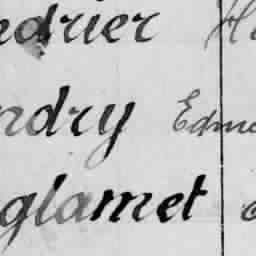 ndrier H
ndry Edmo
glamet